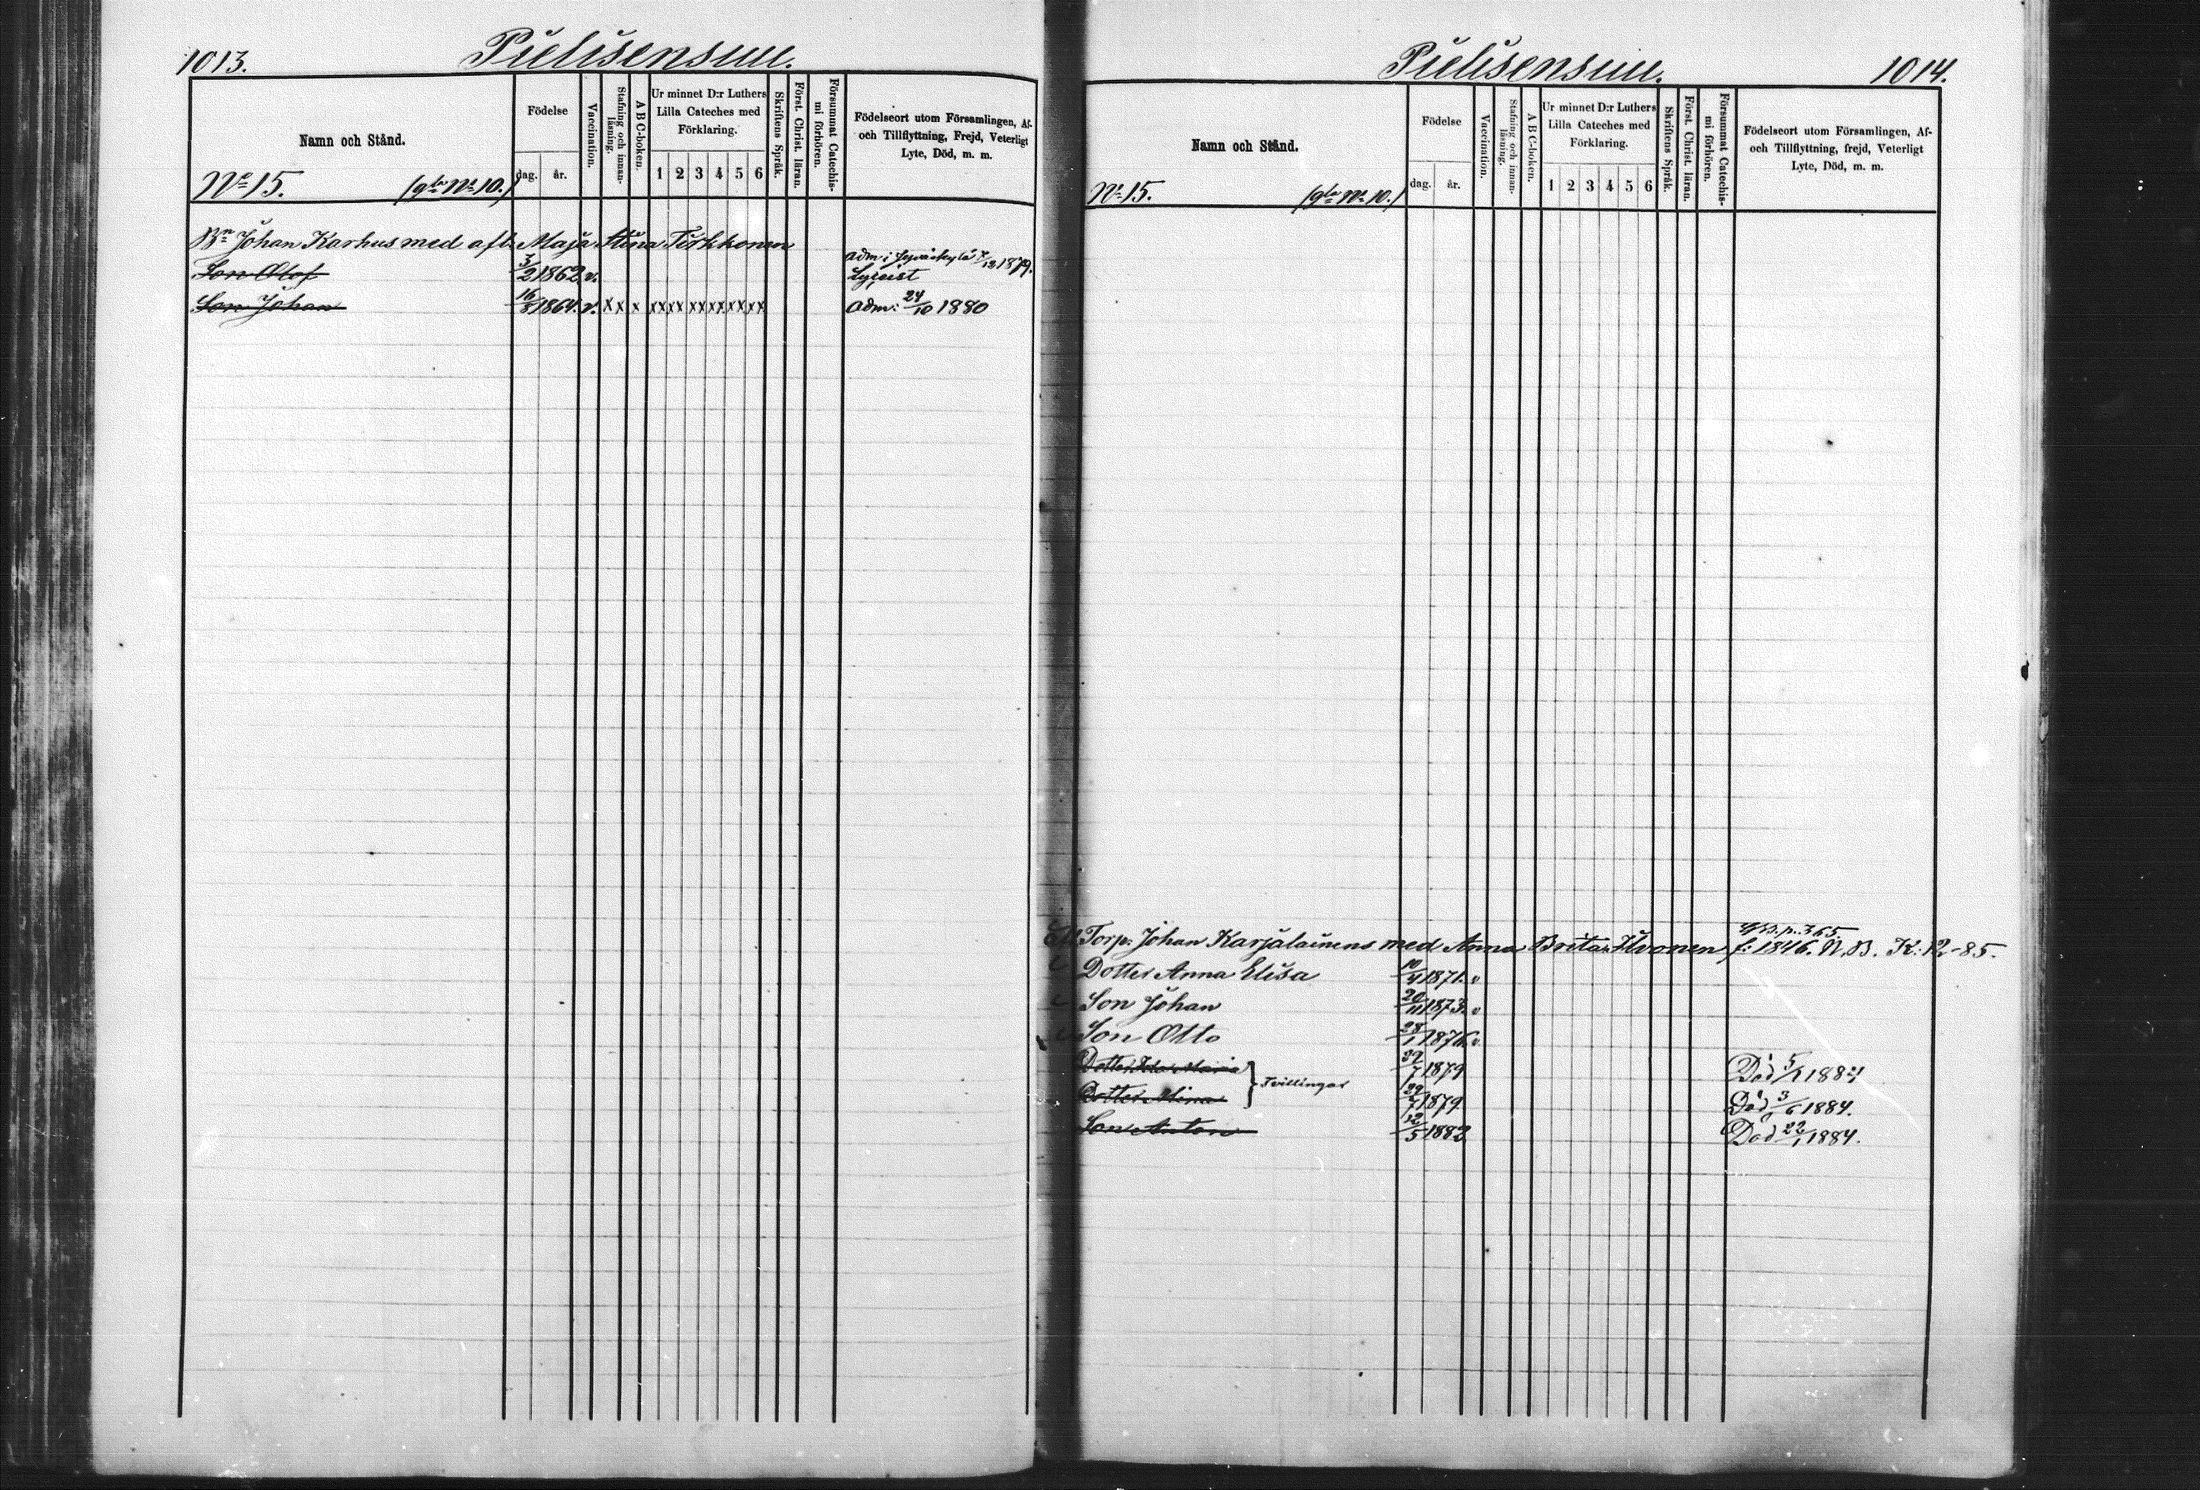 1013. Pielisensuu.
Namn och Stånd.
Födelse
dag. år.
Vaccination.
Stafning och innanläsning.
ABC-boken.
Ur minnet D:r Luthers Lilla Cateches med Förklaring.
1 2 3 4 5 6
Skriftens Språk.
Först. Christ. läran.
Försummat Catechismi förhören.
Födelseort utom Församlingen, Af-
och Tillflyttning, Frejd, Veterligt
Lyte, Död, m. m.
No 15. (gla No 10.)
Bn Johan Karhus med afl. Maja Stina Tirkkonen
Son Olof 3/2 1862 v. adm: i Jyväskylä /12 1879.
Lyceist
Son Johan 16/8 1864. v. x x x xx xx xx xx xx xx adm: 24/10 1880
Pielisensuu. 1014.
Namn och Stånd.
Födelse
dag. år.
Vaccination.
Stafning och innanläsning.
ABC-boken.
Ur minnet D:r Luthers Lilla Cateches med Förklaring.
1 2 3 4 5 6
Skriftens Språk.
Först. Christ. läran.
Försummat Catechismi förhören.
Födelseort utom Församlingen, Af-
och Tillflyttning, frejd, Veterligt
Lyte, Död, m. m.
No 15. (gla No 10.)
p. 365.
Torp: Johan Karjalainens med Anna Brita Ilvonen f. 1846. N.B. K. 12-85.
Dotter Anna Elisa 10/4 1871. v
Son Johan 20/11 1873. v
Son Otto 28/1 1876. v
Dotter Ida Maria 22/7 1879 Död 5/1 1884
Tvillingar
Dotter Mina 22/7 1879 Död 3/6 1884.
Son Anton 12/5 1882 Död 22/1 1884.